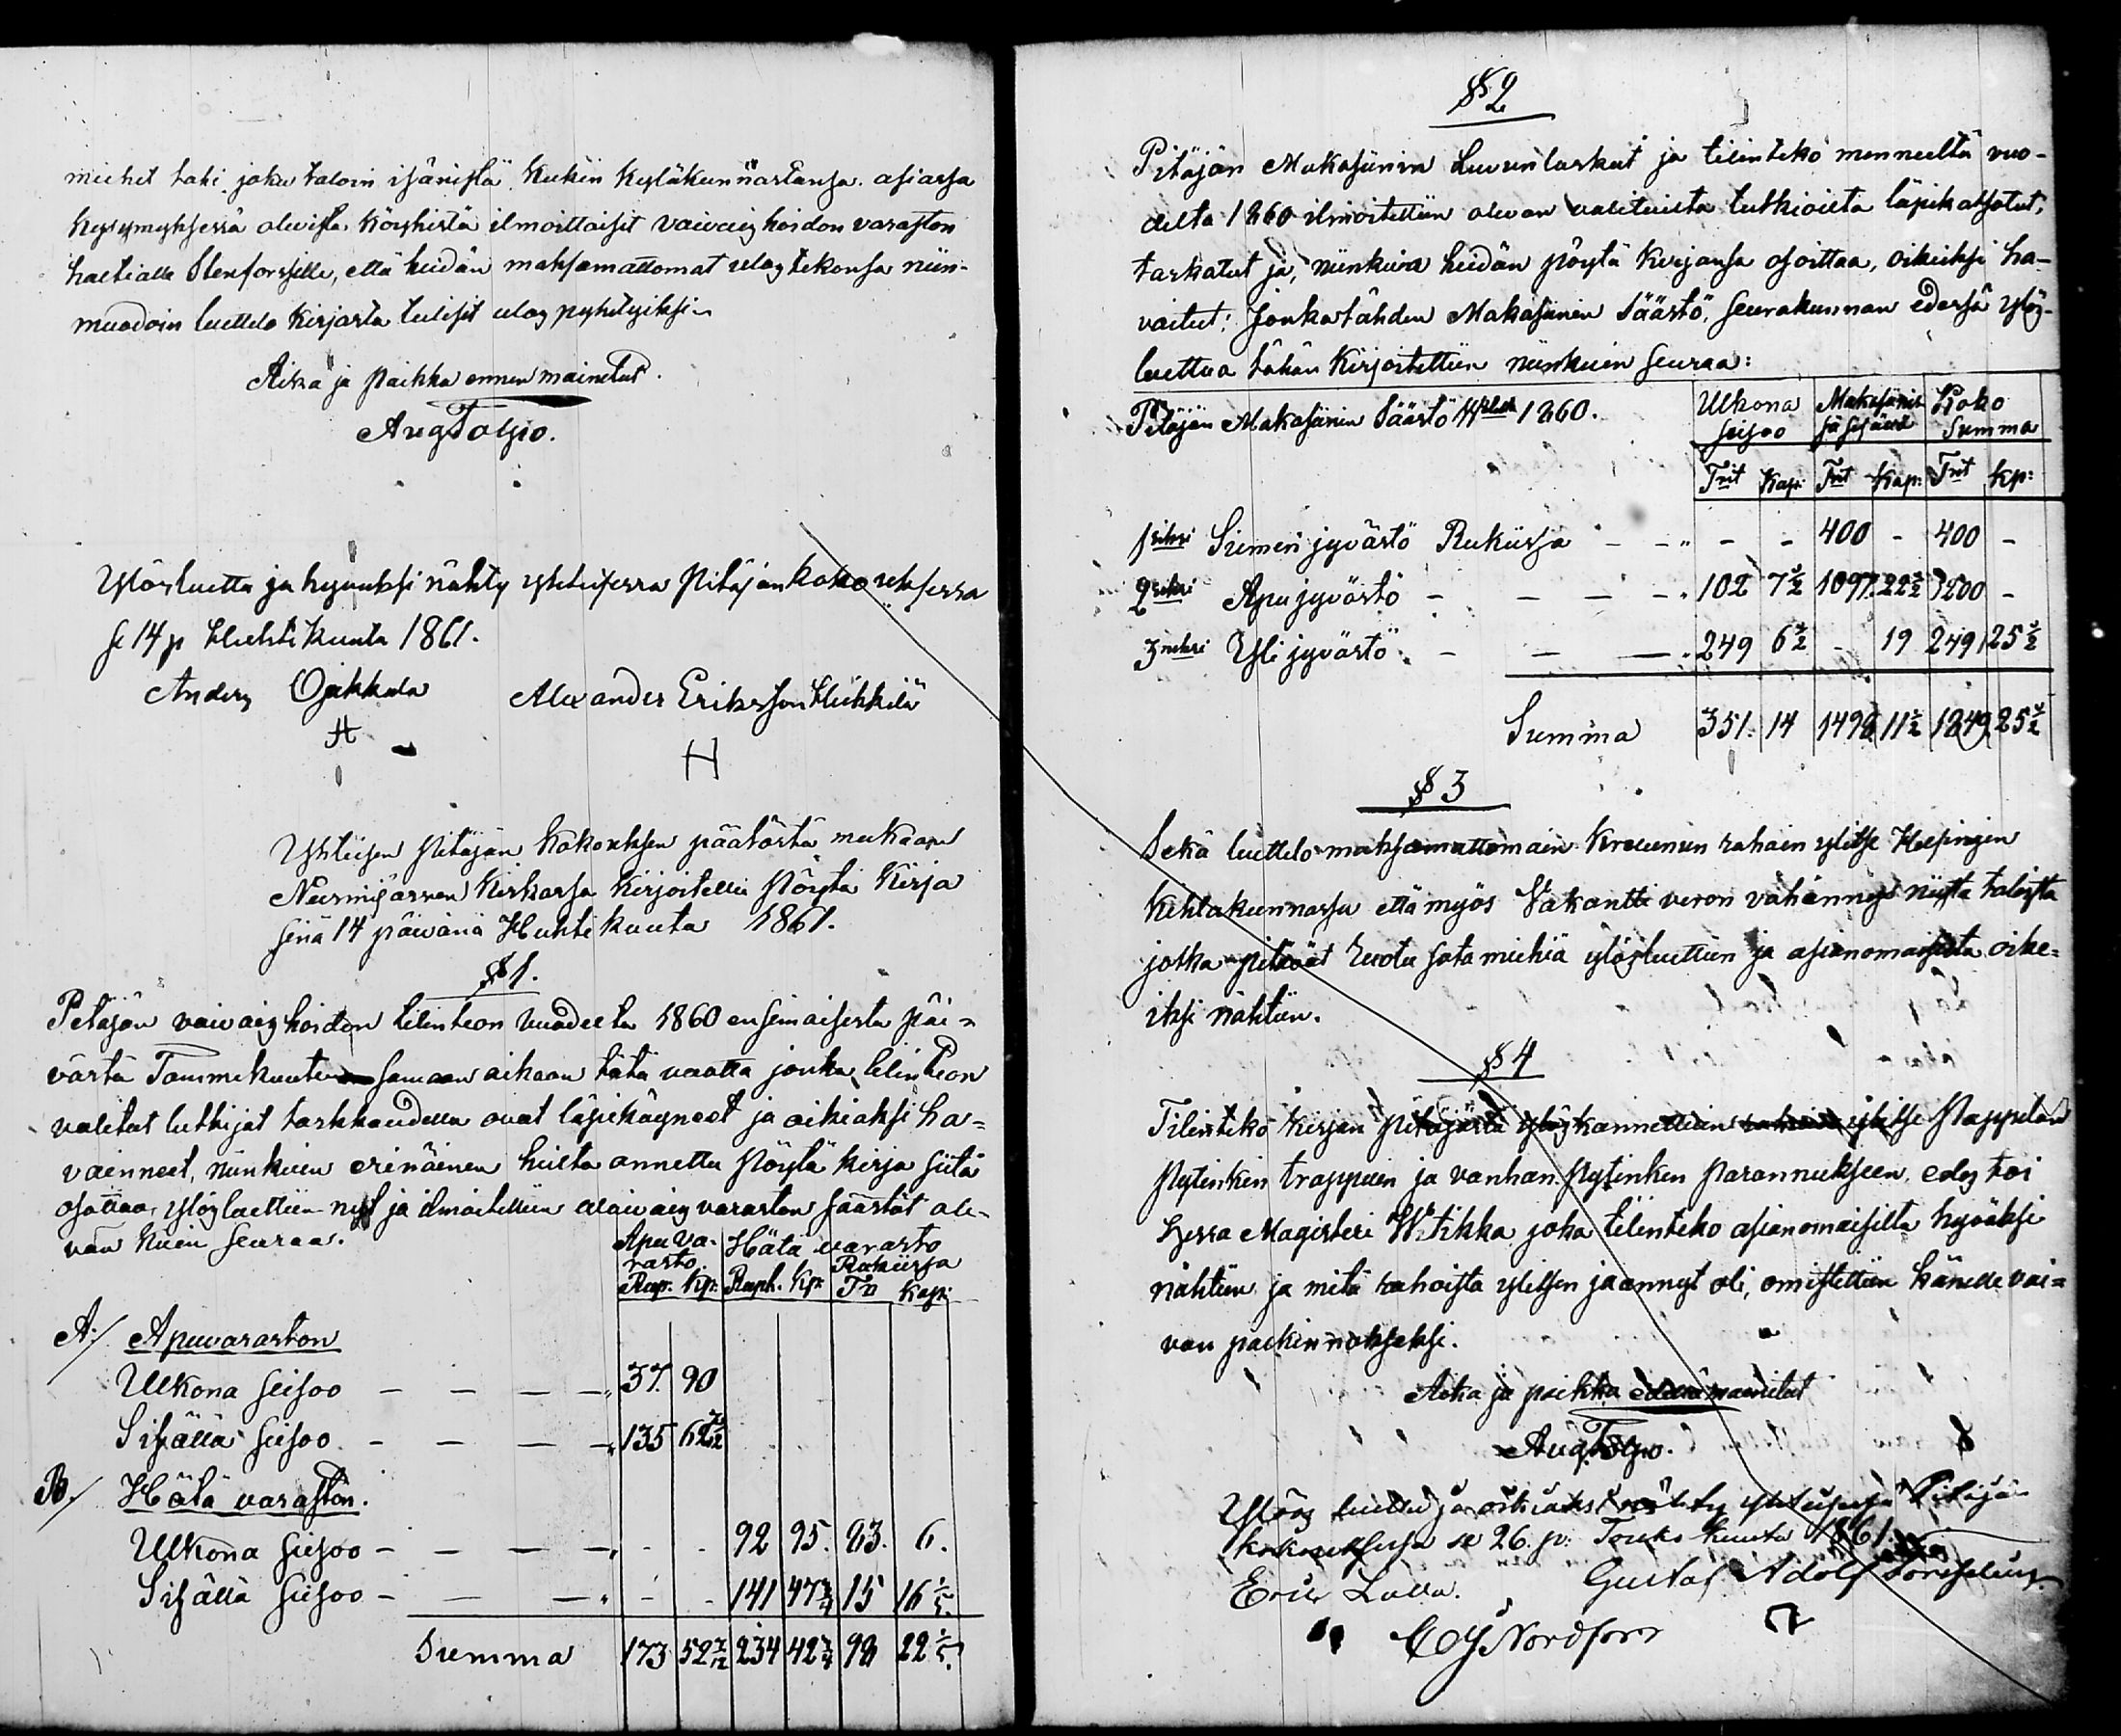 miehet tahi joku taloin isänistä kukin kyläkunnastansa asiassa
kysymyksessä olevista köyhistä ilmoittaisit vaivaishoidon varaston
haltialle Stenforssille, että heidän maksamattomat ulostekonsa niin-
muodoin luettelo kirjasta tulisit ulospyhityiksi.
Aika ja paikka ennen mainitut.
Aug Tolpo.
Ylösluettu ja hyvaksi nähty yhteisessa Pitäjänkokouksessa
se 14 p Huhtikuuta 1861.
Anders Ojakkala Alexander Eriksson Heikkilä
H H
Yhteisen Pitäjän Kokouksen päätöstä mukaan
Nurmijärven Kirkossa Kirjoitettu Pöytä Kirja
sinä 14 päivänä Huhtikuuta 1861.
§ 1.
Pitäjän vaivaishoidon tilinteon vuodelta 1860 ensimaisesta päi-
västä Tammikuuta samaan aikaan tätä vuotta jonka tilinteon
valitut tutkijat tarkkaudella ovat läpikäyneet ja oikiaksi ha-
vainneet, niinkuin erinäinen heiltä annettu Pöytä kirja siitä
osottaa, ylösluettiin nyt ja ilmoitettiin vaivaisvaraston säästöt ole-
van kuin seuraa.
Apuva- Hätä varasto
rasto Rukiissa
Rup. Kp: Rupl. Kp: Tr: Kap:
A:/ Apuvaraston
Ulkona seisoo — — — — „ 37. 90
Sisällä seisoo — — — — „ 135 62 7/12
B./ Hätä varaston.
Ulkona seisoo — — — — „ - - 92 95. 83. 6.
Sisällä seisoo — — — „ - - 141 47 3/4 15 16 1/5.
Summa 173 52 7/12 234 42 3/4 98 22 1/5.
§ 2
Pitäjän Makasiinin Luvunlaskut ja tilinteko menneeltä vuo-
delta 1860 ilmoitettiin olevan valituilta tutkioilta läpikatsotut,
tarkatut ja, niinkuin heidän pöytä kirjansa osoittaa, oikeiksi ha-
vaitut: Jonkatähden Makasiinin säästö, seurakunnan edessä ylös-
luettua tähän kirjoitettiin niinkuin seuraa:
Pitäjän Makasiinin säästö 1860. Ulkona Makasiinis- Koko
seisoo sa sisällä Summa
Trit Kap: Trit Kap: Trit kp:
1seksi Siemen jyvästö Rukiissa — — „ - - 400 - 400 -
2seksi Apu jyvästö — — — — „ 102 7 1/2 1097 22 1/2 1200 -
3neksi Yli jyvästö — — — „ 249 6 1/2 - 19 249 25 1/2
Summa 351. 14 1498 11 1/2 1849 25 1/2
§ 3
Sekä luettelo maksamattomain kruunun rahain ylitse Helsingin
Kihlakunnassa että myös Vakantti veron vähännys niistä taloista
jotka pitävät Ruotu sotamiehiä ylösluettiin ja asianomaisilta oike-
iksi nähtiin.
§ 4
Tilinteko kirjan pitäjästä ylöskannettuin ylitse Pappilan
Pytinkin trappuin ja vanhan Pytinken Parannukseen, edes toi
Herra Magisteri Witikka joka tilinteko asianomaisilta hyväksi
nähtiin ja mitä rahoista ylitsen jäännyt oli, omistettiin hänelle vai-
van palkinnoksksi.
Aika ja paikka mainitut
Aug Tolpo.
Ylös luettu ja oikiaksi nähty yhteisessä Pitäjän
kokouksessa se 26. p: Touko kuuta 1861.
Eric Lalla. Gustaf Adolf
C J Nordfors